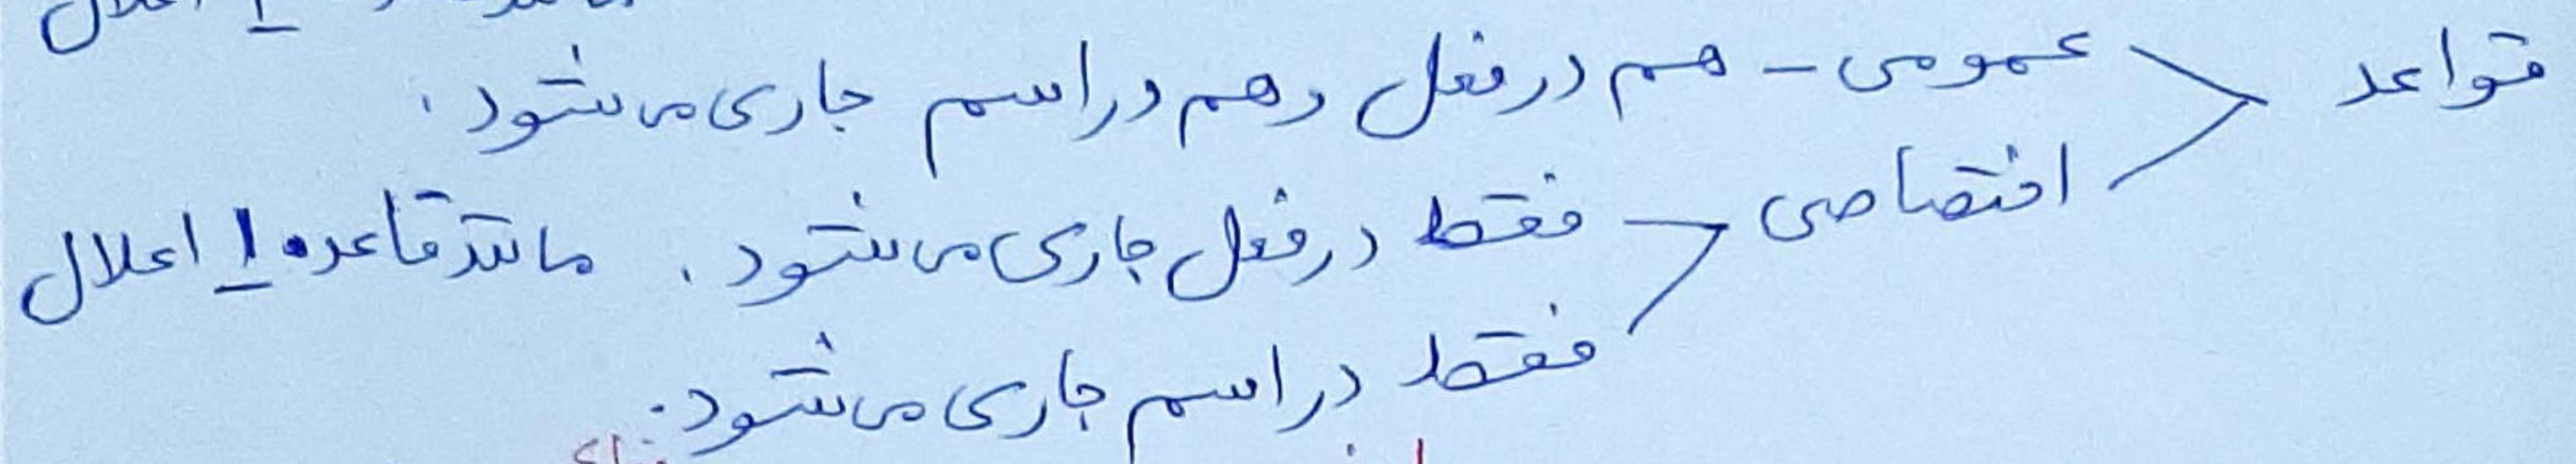 اعلال
قواعد < عمومی - هم در فعل و هم در اسم جاری می شود.
اختصاصی < فقط در فعل جاری می شود. مانند قاعده ۱ اعلال
فقط در اسم جاری می شود.